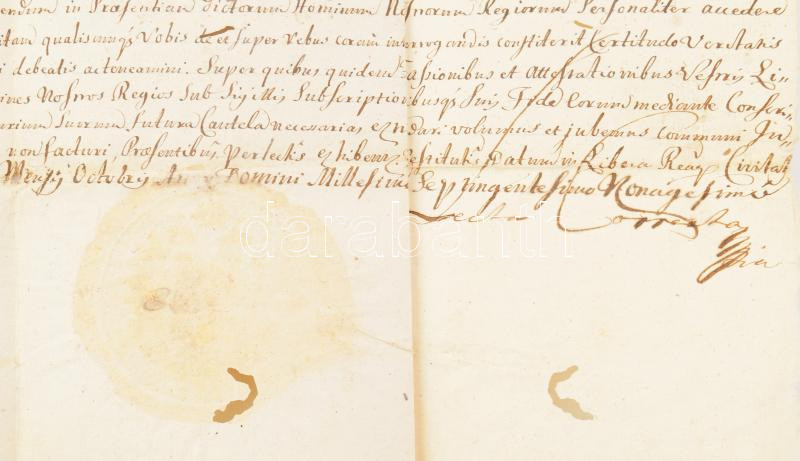 endum in Præsentian dictorum Hominum Nostrorum Regiorum Personaliter accedere
itam qualiscunqs Vobis de et Super Rebus coram interrogandis constiterit Certitudo Veritatis
i debeatis ac teneamini. Super quibus quidem Fassionibus et Attestationibus Vestris Li-
ines Nostros Regios Sub Sigillis Subscriptionibusqs Suis Fide Eorum mediante Conscri-
urium Suorum futura Cautela necessarias extradari volumus et jubemus communi Ju-
non facturi, Præsentibus perlectis exhibenti restitutis. Datum in Libera Reaq Civitate
Mensis Octobris Anno Domini Millesimo Septingentesimo Nonagesimo
Lecta Correcta
darabanth